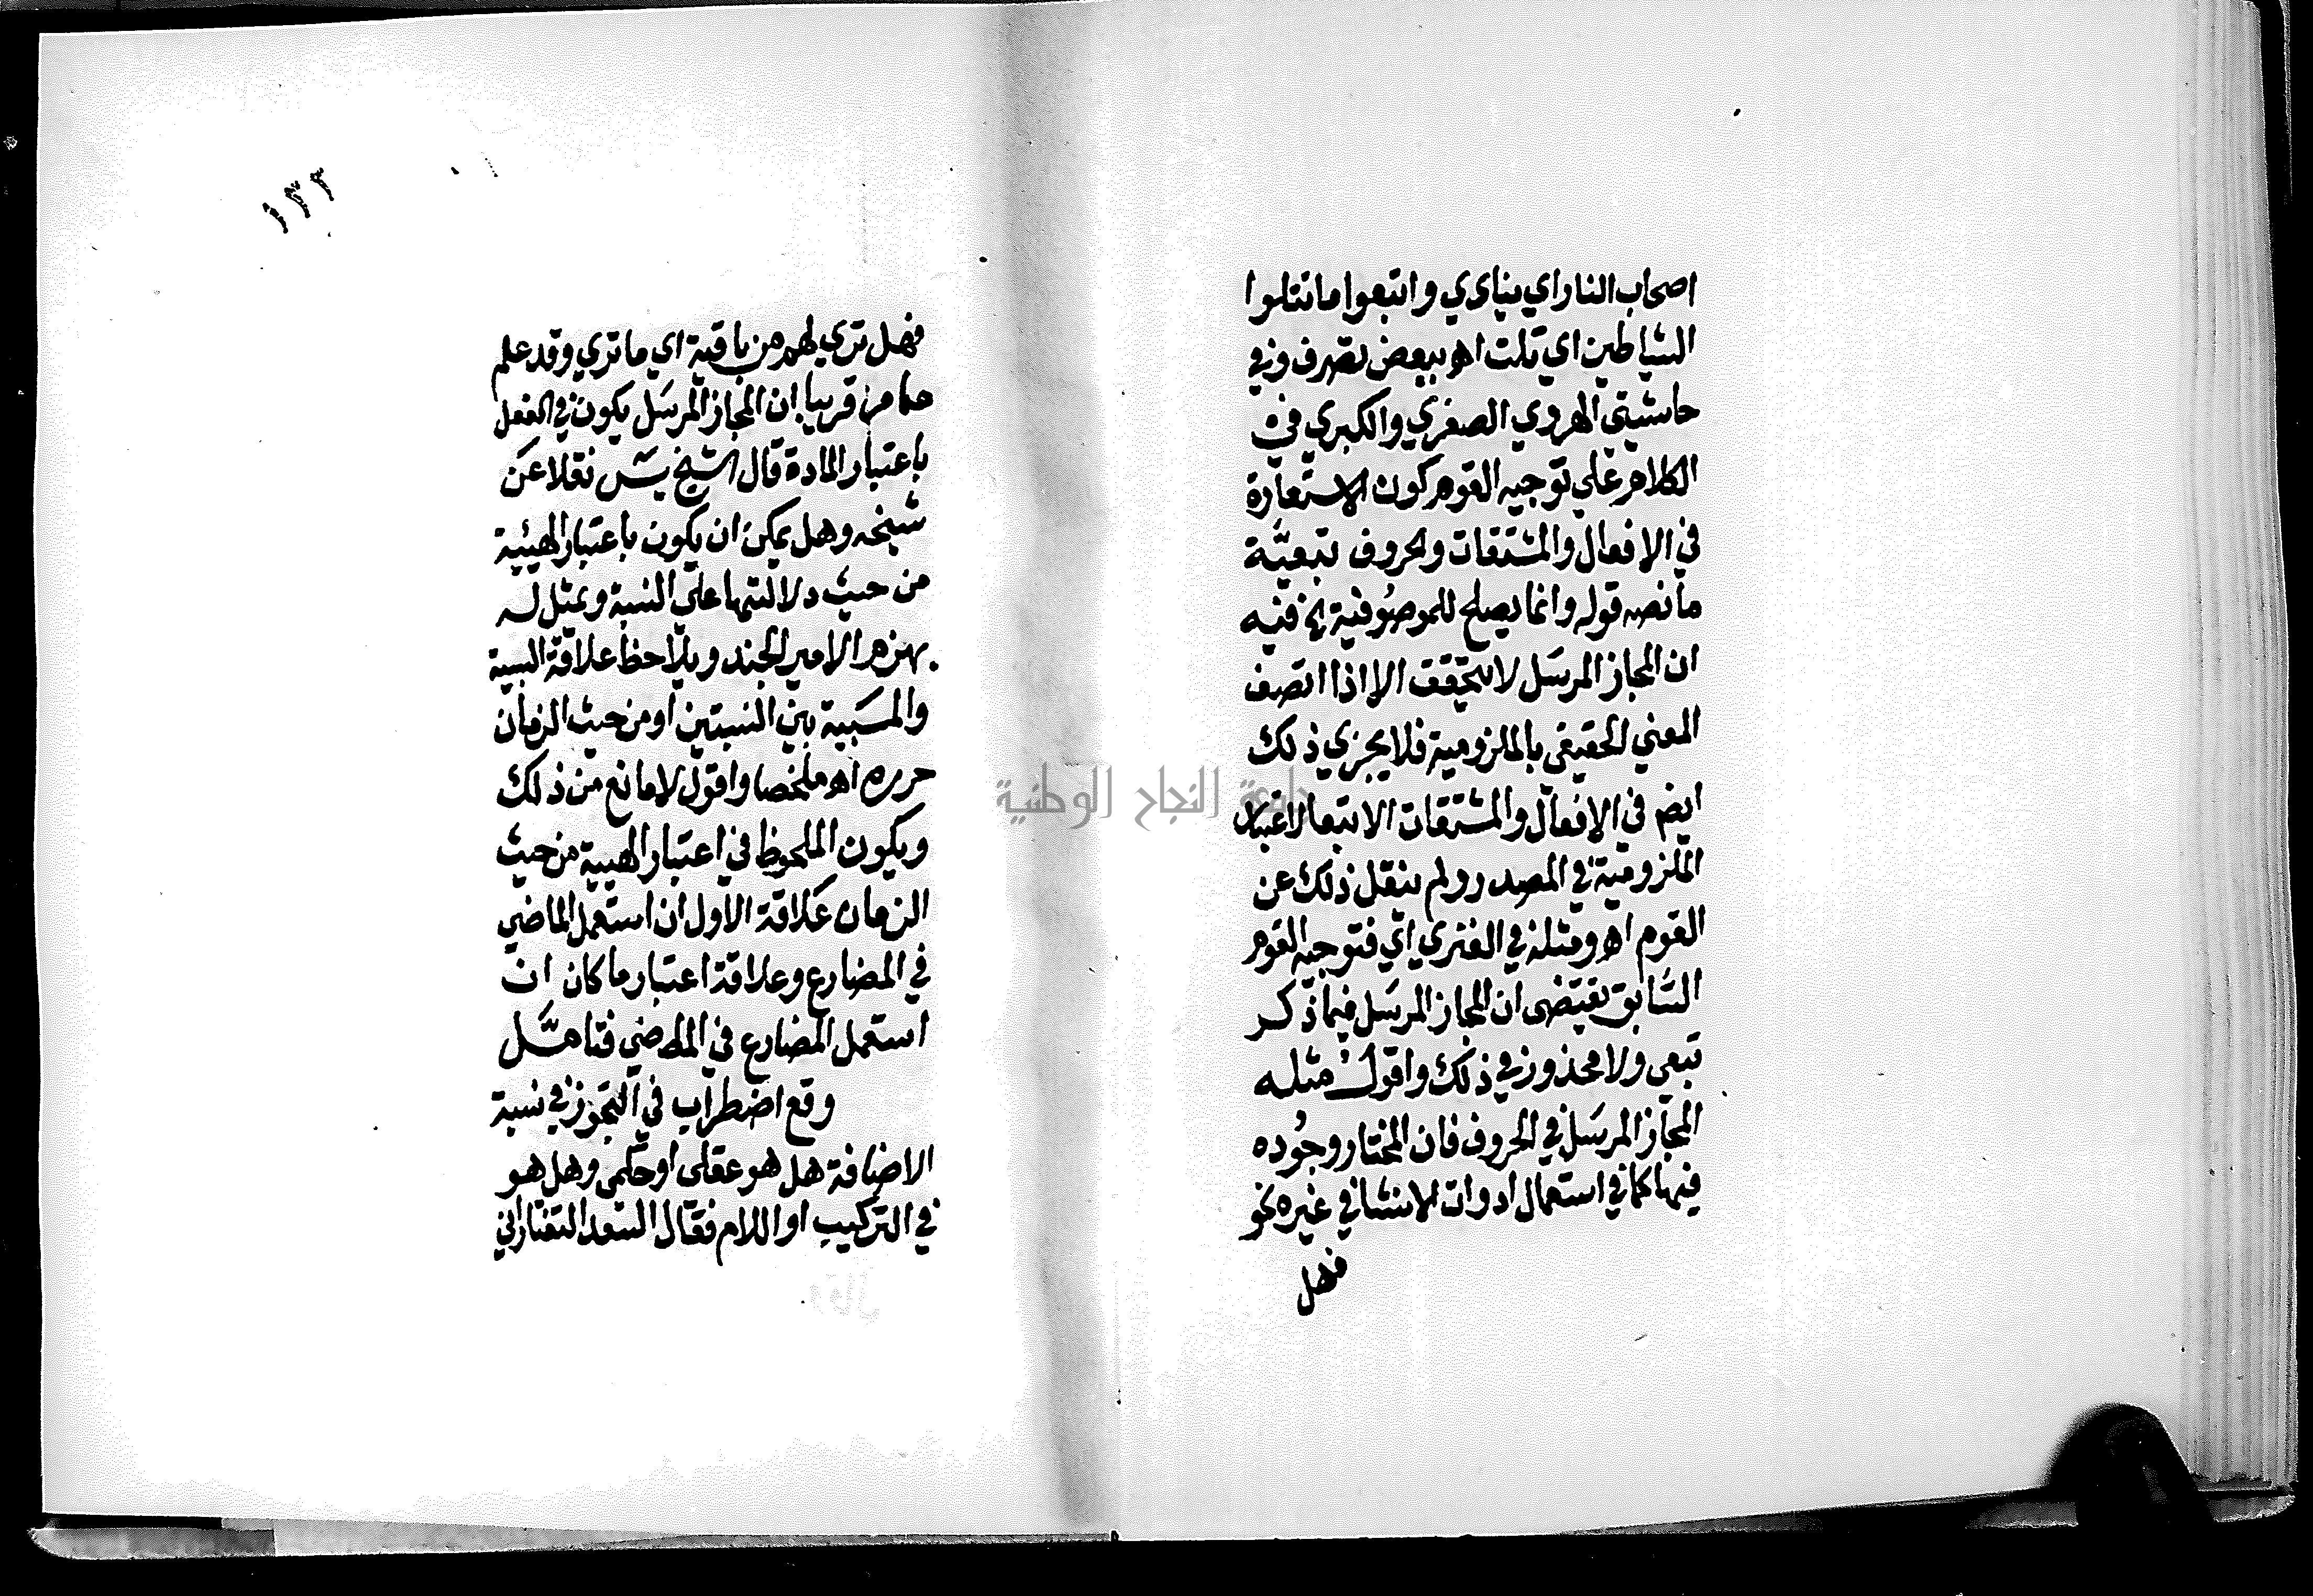 اصحاب النار اي ينادي واتبعوا ما تتلوا
الشياطين اي تلت اهـ ببعض تصرف وفي
حاشيتي الهروي الصغري والكبري في
الكلام علي توجيه القوم كون الاستعارة
في الافعال والمشتقات والحروف تبعية
ما نصه قوله وانما يصلح للموصوفية الخ فيه
ان المجاز المرسل لا يتحقق الا اذا اتصف
المعني الحقيقي بالملزومية فلا يجزي ذلك
ايضم في الافعال والمشتقات الا تبعا لاعتبار
الملزومية في المصدر ولم ينقل ذلك عن
القوم اهـ ومثله في الفنري اي فتوجيه القوم
السابق يقتضي ان المجاز المرسل فيما ذكر
تبعي ولا محذور في ذلك واقول مثله
المجاز المرسل في الحروف فان المختار وجوده
فيها كما في استعمال ادوات الانشا في غيره نحو
فهل
١٣٢
فهل تري لهم من باقية اي ما تري وقد علم
مما مر قريبا ان المجاز المرسل يكون في الفعل
باعتبار المادة قال الشيخ يس نقلا عن
شيخه وهل يمكن ان يكون باعتبار الهيئية
من حيث دلالتها علي النسبة ويمثل له
بهزم الامير الجند ويلاحظ علاقة السببية
والمسببية بين النسبتين او من حيث الزمان
حرره اهـ ملخصا واقول لا مانع من ذلك
ويكون الملحوظ في اعتبار الهيية من حيث
الزمان علاقة الاول ان استعمل الماضي
في المضارع وعلاقة اعتبار ما كان ان
استعمل المضارع في الماضي فتامل
وقع اضطراب في التجوز في نسبة
الاضافة هل هو عقلي او حكمي وهل هو
في التركيب او اللام فقال السعد التفتازاني
جامعة النجاح الوطنية